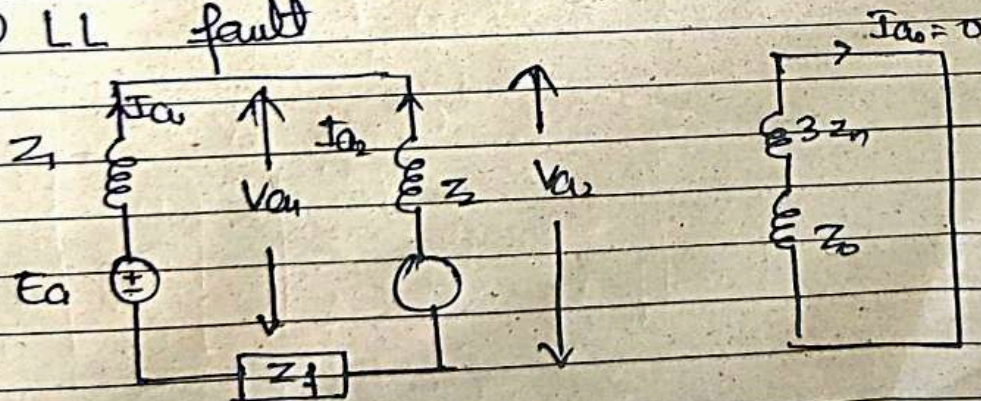 ) LL fault
Ia₀ = 0
Ia₁
Z₁
Va₁
Ia₂
Z₂
Va₂
3Zn
Z₀
Ea
±
Zf